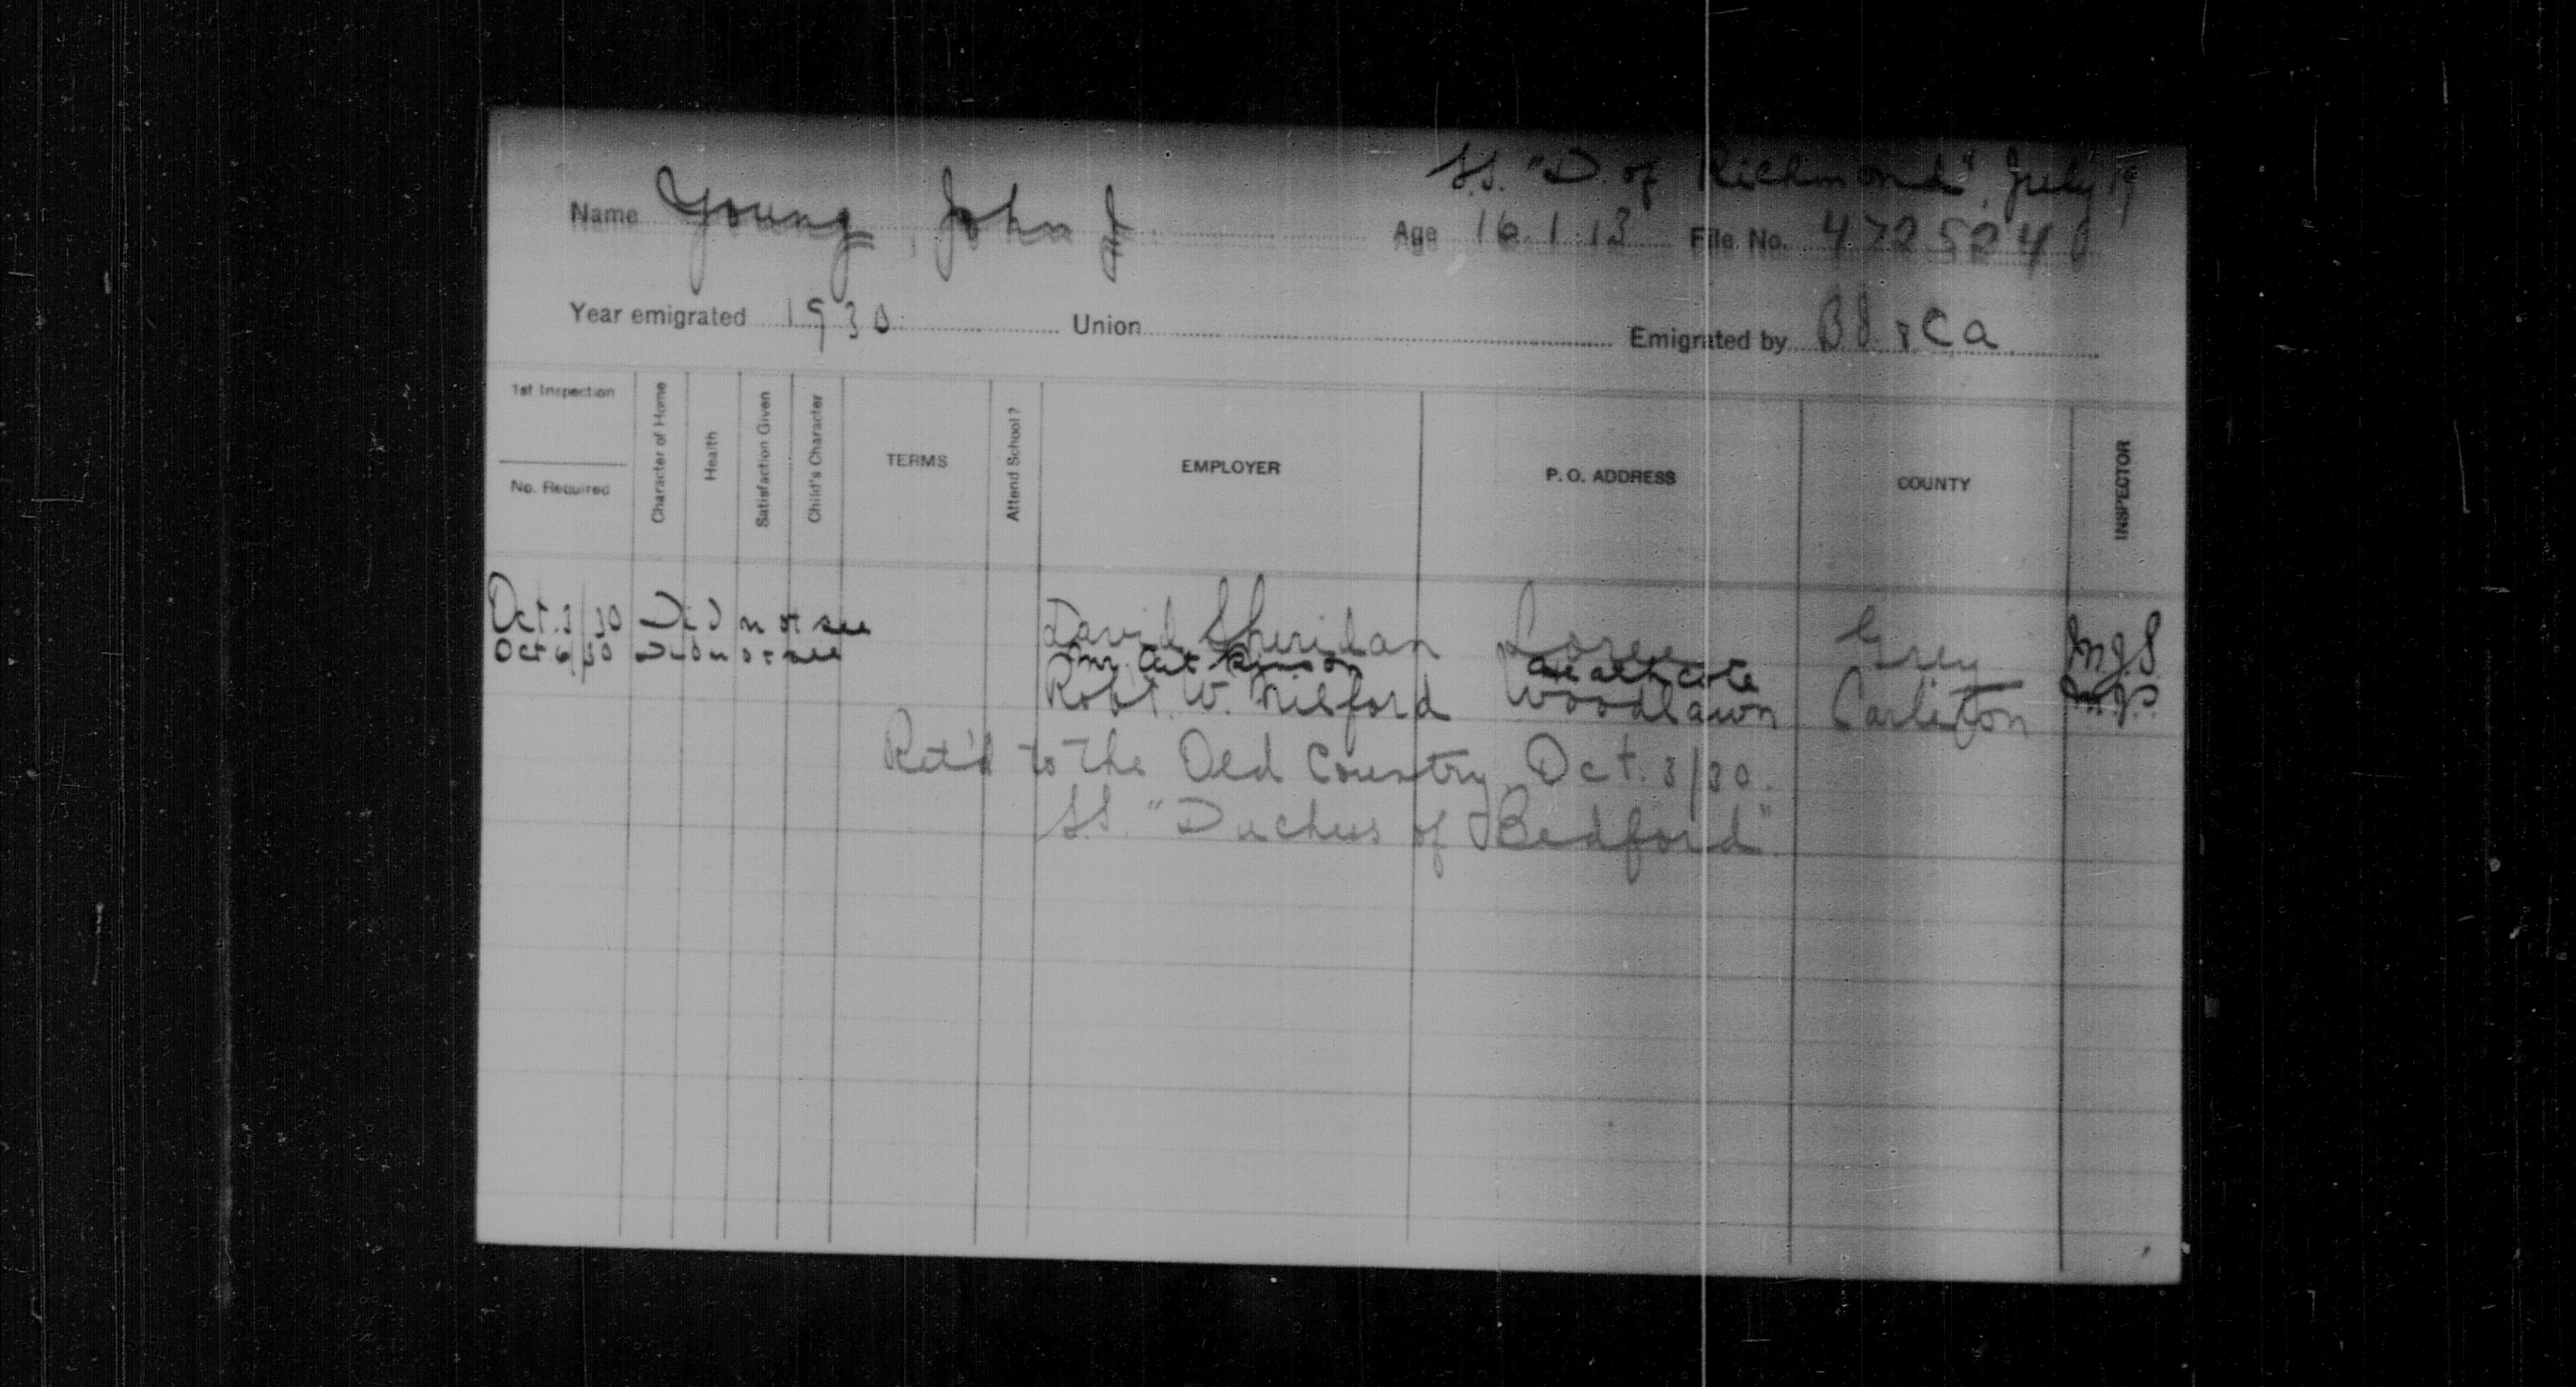 S.S. "D. of Richmond" July 19
Name Young, John J Age 16.1.13 File No. 472524
Year emigrated 1930 Union Emigrated by &
1st Inspection
No. Required
Character of Home
Health
Satisfaction Given
Child's Character
TERMS
Attend School?
EMPLOYER
P. O. ADDRESS
COUNTY
INSPECTOR
Oct. 3/30 Did not see David Sheridan Loree Grey M.J.S.
Oct 6/30 Did not see Mr. Atkinson Heathcote M.J.S.
Robt. W. Milford Woodlawn Carleton
Ret'd to the Old Country, Oct. 3/30.
S.S. "Duchess of Bedford"